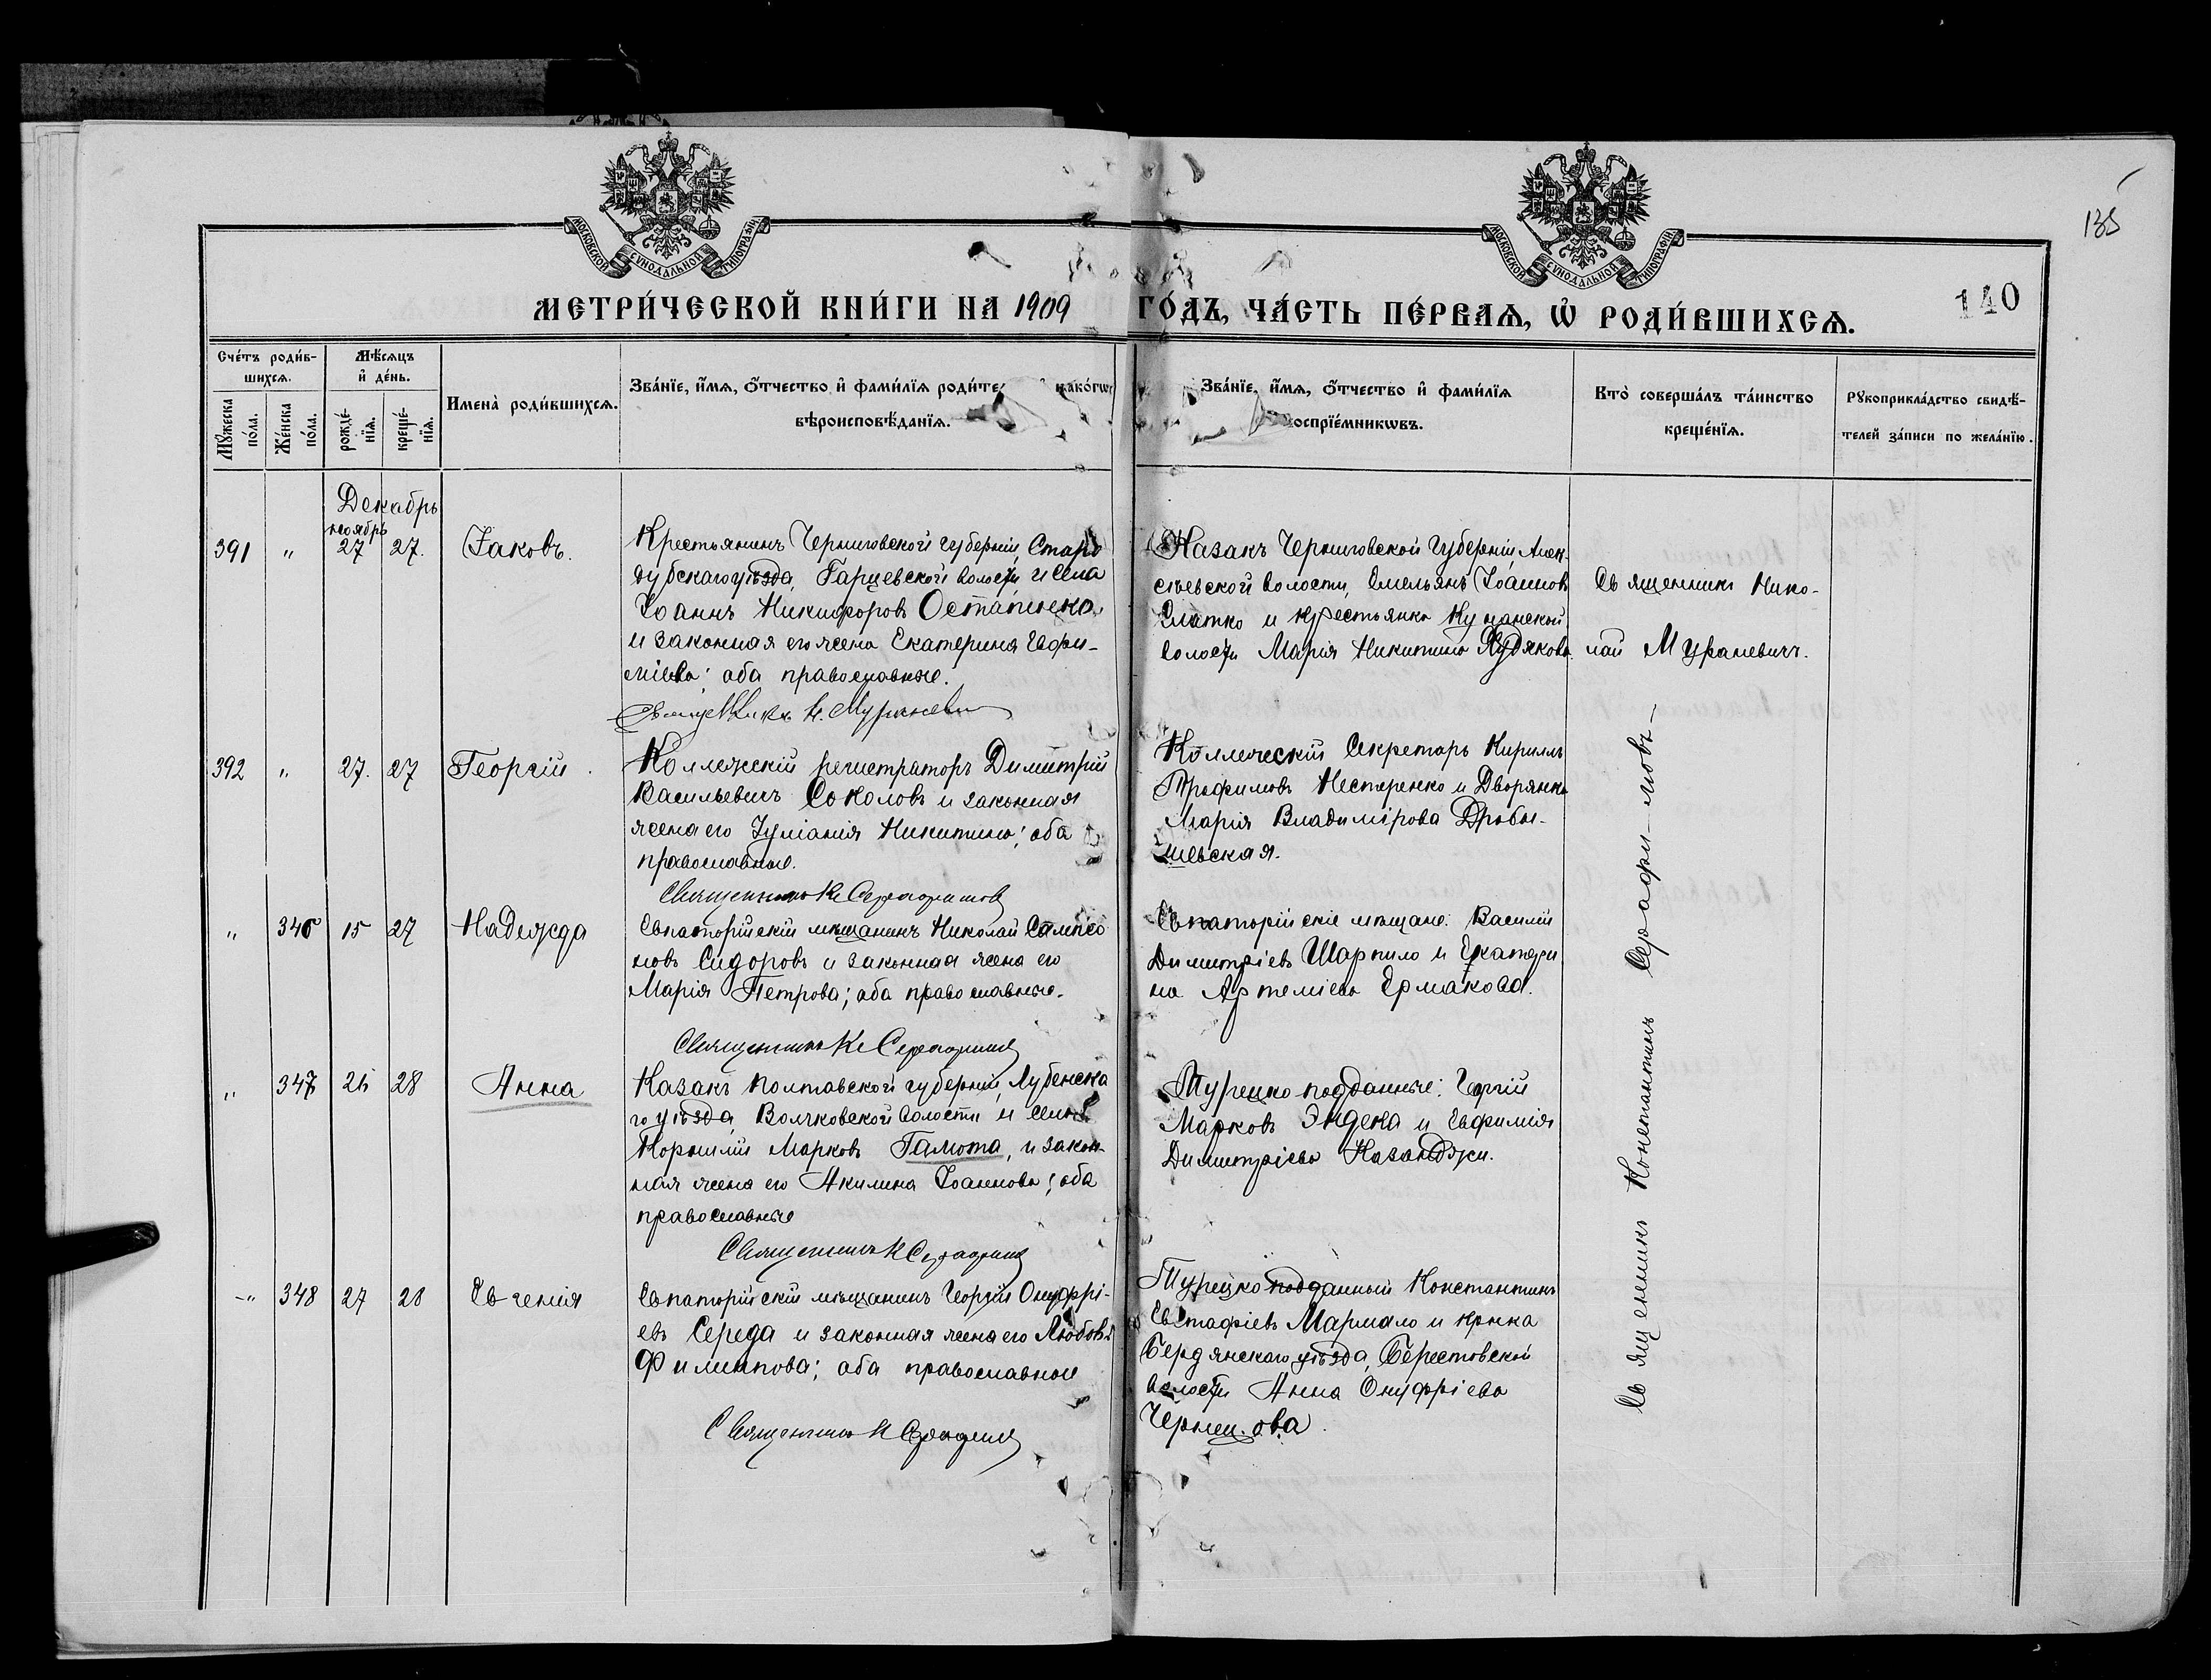 135
МОСКОВСКОЙ СѴНОДАЛЬНОЙ ТИПОГРАФІИ.
МОСКОВСКОЙ СѴНОДАЛЬНОЙ ТИПОГРАФІИ.
МЕТРИ́ЧЕСКОЙ КНИ́ГИ НА 1909 ГО́ДЪ, ЧА́СТЬ ПЕ́РВАѦ, Ѡ҆ РОДИ́ВШИХСѦ.
140
Сче́тъ роди́в-
шихсѧ.
Мꙋ́жеска по́ла.
Же́нска по́ла.
Мѣ́сѧцъ
и҆ де́нь.
рожде́-
нїѧ.
креще́-
нїѧ.
И҆мена̀ роди́вшихсѧ.
Зва́нїе, и҆́мѧ, ѻ҆́тчество и҆ фами́лїѧ роди́те како́гѡ
вѣроисповѣ́данїѧ.
Зва́нїе, и҆́мѧ, ѻ҆́тчество и҆ фами́лїѧ
оспрїе́мникѡвъ.
Кто̀ соверша́лъ та́инство
креще́нїѧ.
Рꙋкоприкла́дство свидѣ́-
телей за́писи по жела́нїю.
Декабрь
391 " ноябрь 27 27. Іаковъ.
Крестьянинъ Черниговской губерніи, Старо
дубскаго уѣзда, Гарцевской волости и села
Іоаннъ Никифоровъ Остапенко,
и законная его жена Екатерина Евфи-
міева; оба православные.
Священникъ Н. Мураневич
Казакъ Черниговской губерніи, Алек-
сѣевской волости, Емельянъ Іоанновъ
и крестьянка
волости Марія Никитина Худякова.
Священникъ Нико-
лай Мураневичъ.
392 " 27. 27 Георгій.
Коллежскій регистраторъ Димитрій
Васильевичъ Соколовъ и законная
жена его Іуліанія Никитина; оба
православные.
Священникъ К Серафимов
Коллежскій Секретарь Кириллъ
Трофимовъ Нестеренко и Дворянка
Марія Владимірова Дробы-
шевская.
" 346 15 27 Надежда
Евпаторійскій мѣщанинъ Николай Сампсо
новъ Сидоровъ и законная жена его
Марія Петрова; оба православные.
Священникъ К Серафимов
Евпаторійскіе мѣщане: Василій
Димитріевъ Шарпило и Екатери
на Артеміева Ермакова.
" 347 26 28 Анна
Казакъ Полтавской губерніи, Лубенска
го уѣзда, Волчковской волости и села
Корнилій Марковъ Гамота, и закон-
ная жена его Акилина Іоаннова; оба
православные
Священникъ К Серафимов
Турецко подданные: Георгій
Марковъ Эндека и Евфимія
Димитріева Казанджи.
" 348 27 28 Евгенія
Евпаторійскій мѣщанинъ Георгій Онуфрі-
евъ Середа и законная жена его Любовь
Филиппова; оба православные
Священникъ К Серафимов
Турецко подданный Константинъ
Евстафіевъ Мармало и кр-нка
Бердянскаго уѣзда, Берестовской
волости Анна Онуфріева
Чернецова.
Священникъ Константинъ Серафи-мовъ-